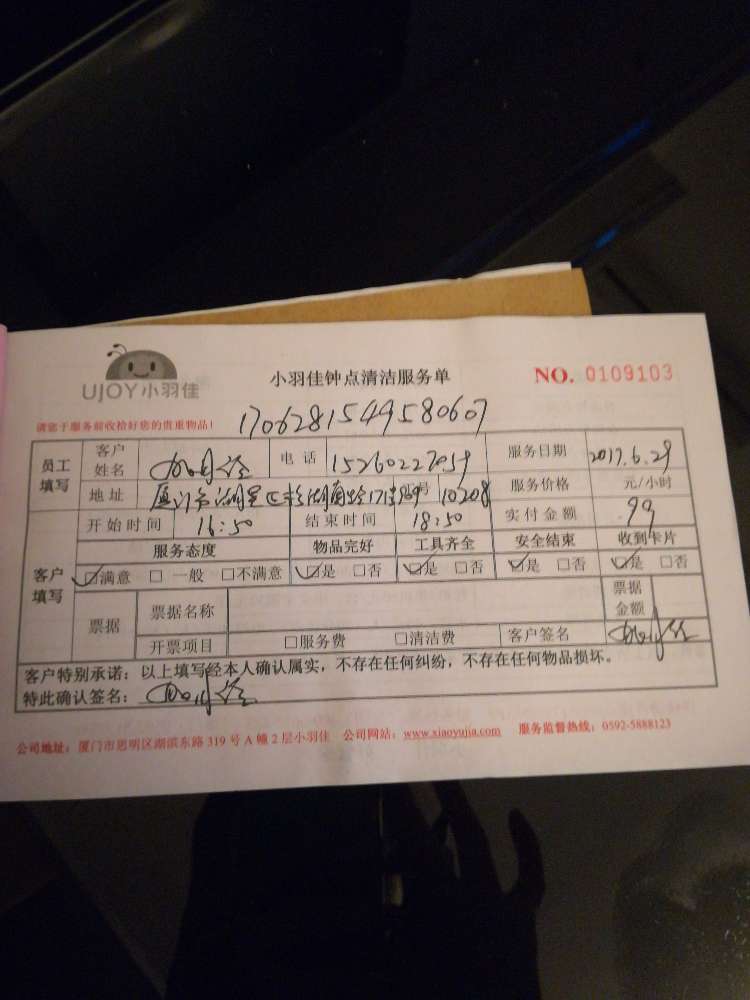 UJOY小羽佳
小羽佳钟点清洁服务单
NO. 0109103
请您于服务前收拾好您的贵重物品!
1706281549580607
员工填写 客户姓名 电话 15260227059 服务日期 2017.6.29
地址 厦门市湖里区 10208 服务价格 元/小时
开始时间 16:50 结束时间 18:50 实付金额 99
客户填写 服务态度 物品完好 工具齐全 安全结束 收到卡片
☑满意 □一般 □不满意 ☑是 □否 ☑是 □否 ☑是 □否 ☑是 □否
票据 票据名称 票据金额
开票项目 □服务费 □清洁费 客户签名
客户特别承诺：以上填写经本人确认属实，不存在任何纠纷，不存在任何物品损坏。
特此确认签名：
公司地址：厦门市思明区湖滨东路 319 号 A 幢 2 层小羽佳 公司网站：www.xiaoyujia.com 服务监督热线：0592-5888123